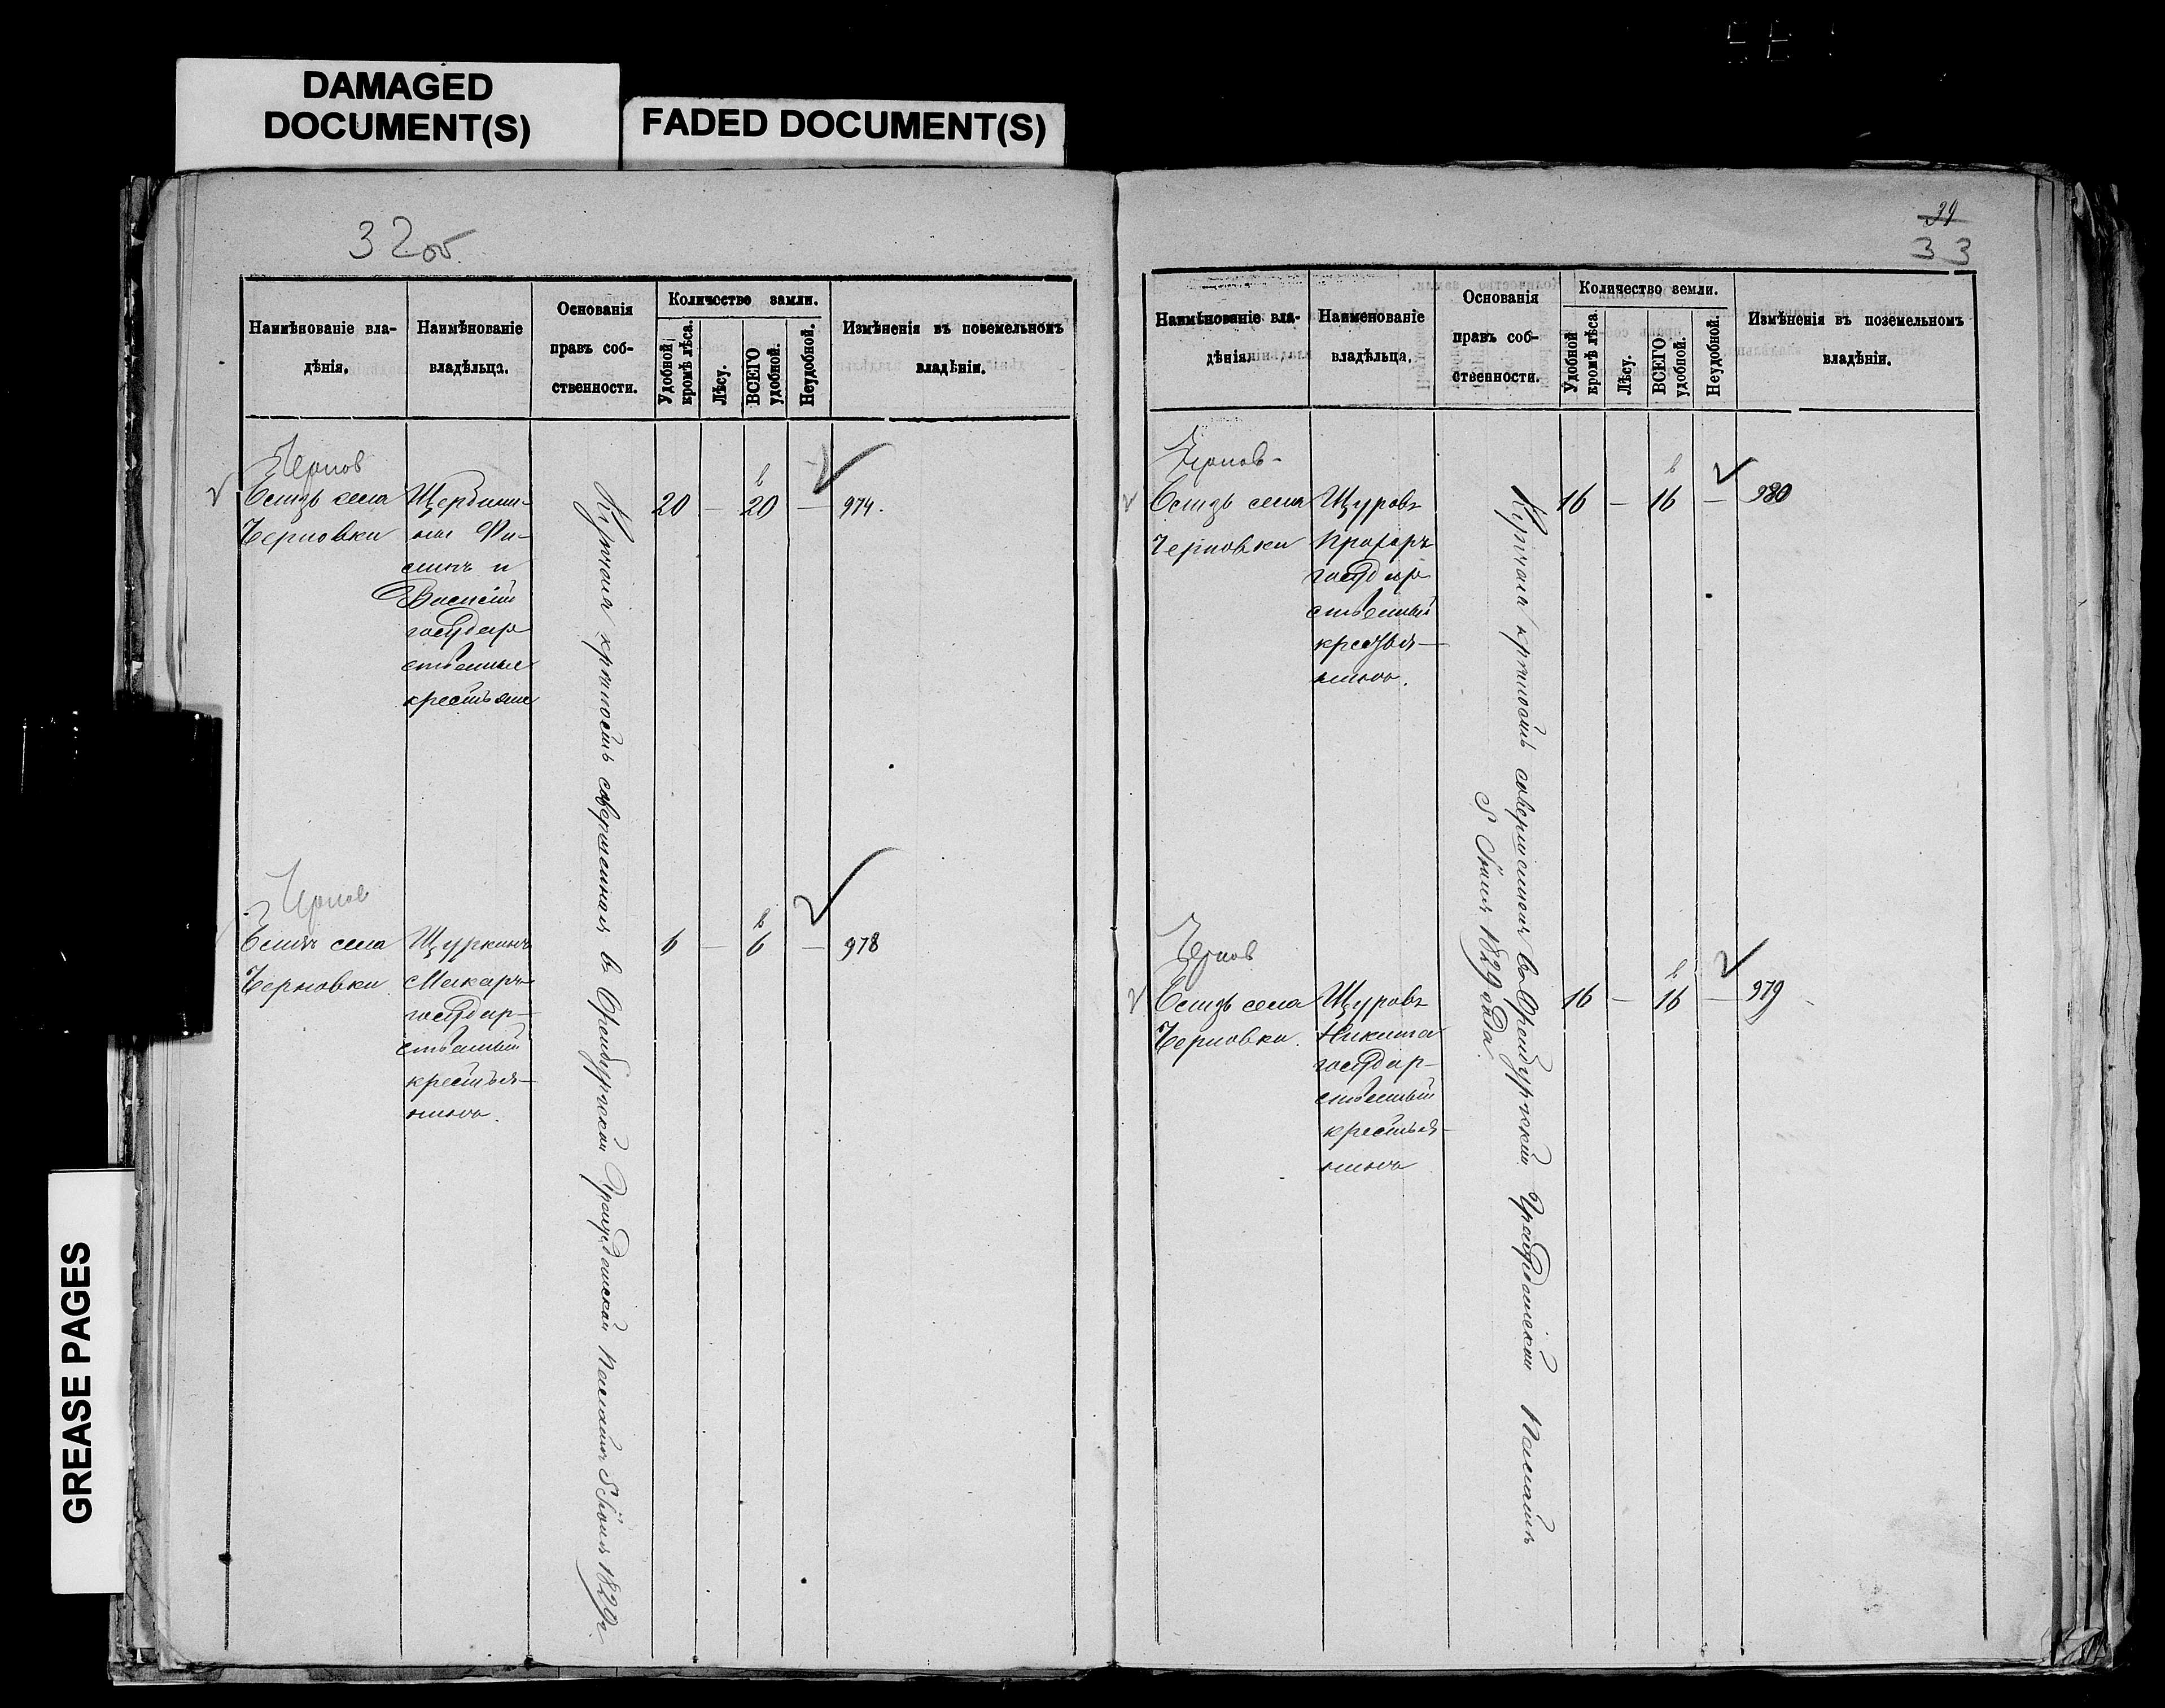 DAMAGED
DOCUMENT(S)
FADED DOCUMENT(S)
GREASE PAGES
32об.
Наимѣнованіе вла-
дѣнія.
Наимѣнованіе
владѣльца.
Основанія
правъ соб-
ственности.
Количество земли.
Удобной
кромѣ лѣса.
Лѣсу.
ВСЕГО
удобной.
Неудобной.
Измѣненія въ поземельномъ
владѣніи.
Чернов
близь села
Черновки
Щербини-
ны Фи-
липъ и
Василій
государ
ственные
крестьяне
20 — 20 — 974.
Купчая крѣпость совершенная въ Оренбургской Гражданской Палатѣ 8 Іюня 1829 г.
Чернов
близь села
Черновки.
Щуркинъ
Макаръ
государ-
ственный
крестья-
нинъ.
6 — 6 — 978
39
33
Наимѣнованіе вла-
дѣнія.
Наименованіе
владѣльца.
Основанія
правъ соб-
ственности.
Количество земли.
Удобной
кромѣ лѣса.
Лѣсу.
ВСЕГО
удобной.
Неудобной.
Измѣненія въ поземельномъ
владѣніи.
Чернов-
близь села
Черновки
Щуровъ
Прохоръ
государ
ственный
крестья-
нинъ.
16 — 16 — 980
Купчая крѣпость совершенная въ Оренбургской Гражданской Палатѣ
8 Іюня 1829 года.
Чернов
близь села
Черновки.
Щуровъ
Никита
государ-
ственный
крестья-
нинъ
16 — 16 — 979